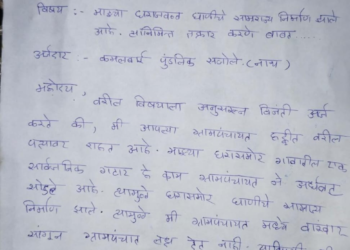 विषय :- माझ्या घरासमोर घाणीचे साम्राज्य निर्माण झाले
आहे. त्यानिमित्त तक्रार करणे बाबत ...
अर्जदार :- कमलबाई पुंडलिक (नाथ)
महोदय,
वरील विषयाला अनुसरून विनंती अर्ज
करते की, मी आपल्या ग्रामपंचायत हद्दीत वरील
पत्त्यावर राहत आहे. माझ्या घरासमोर गावातील
सार्वजनिक गटार चे काम ग्रामपंचायत ने अर्धवट
सोडले आहे. त्यामुळे घरासमोर घाणीचे साम्राज्य
निर्माण झाले. त्यामुळे मी ग्रामपंचायत मध्ये वारंवार
सांगून ग्रामपंचायत लक्ष देत नाही.